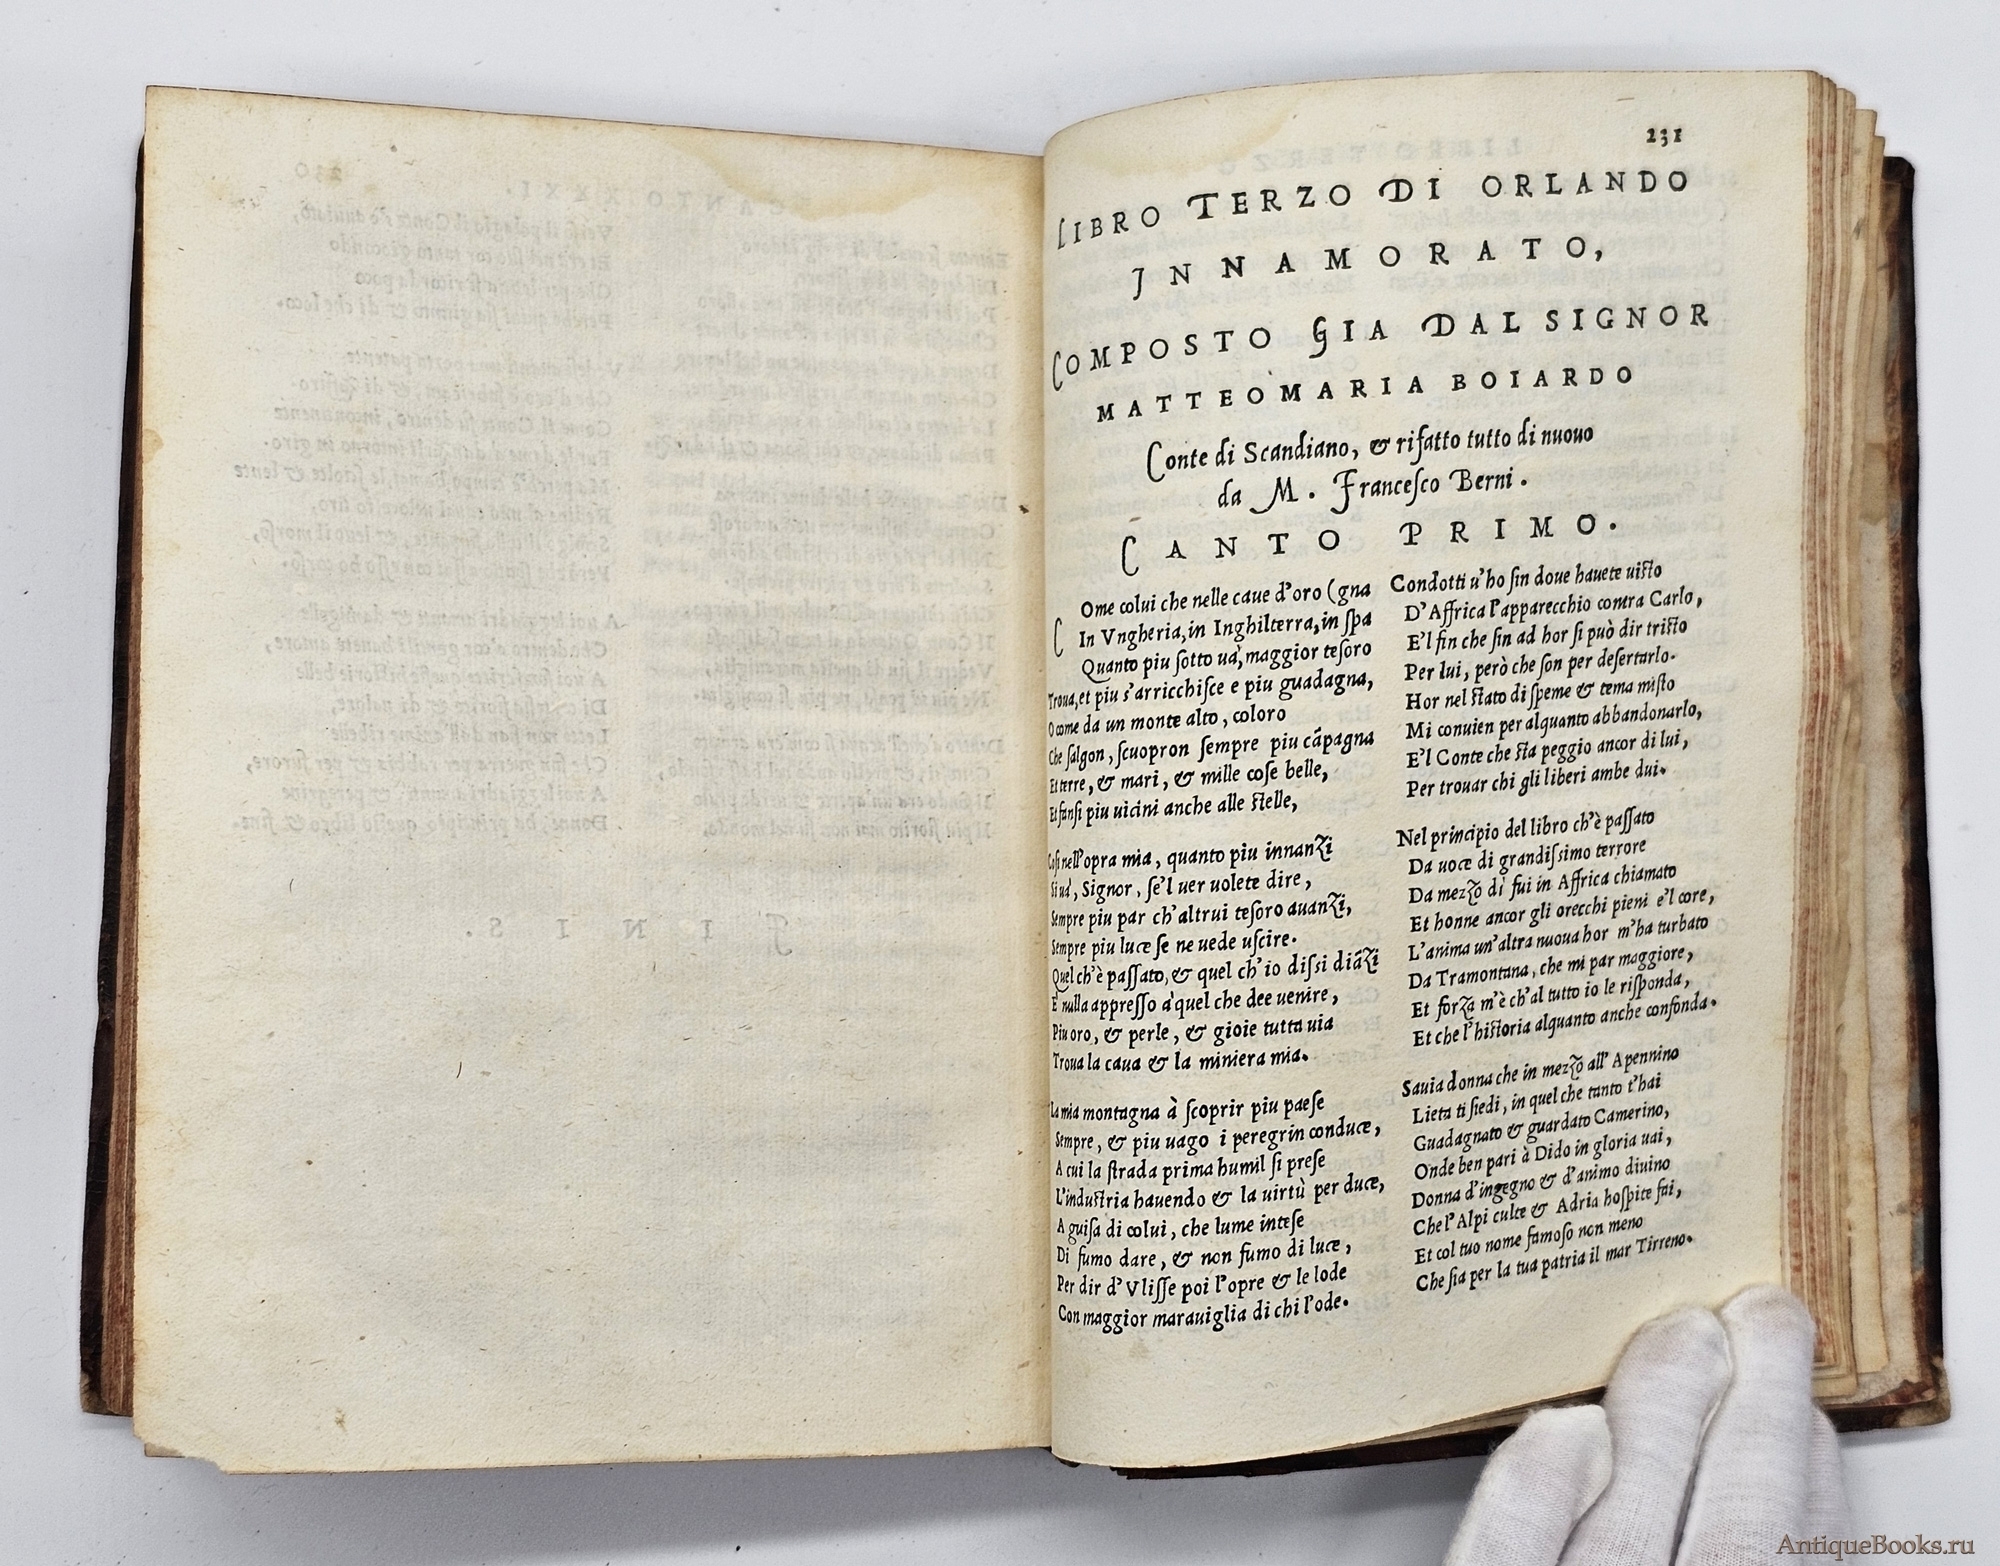 231
LIBRO TERZO DI ORLANDO
JNNAMORATO,
COMPOSTO GIA DAL SIGNOR
MATTEOMARIA BOIARDO
Conte di Scandiano, & rifatto tutto di nuouo
da M. Franceſco Berni.
CANTO PRIMO.
COme colui che nelle caue d'oro (gna
In Vngheria, in Inghilterra, in ſpa
Quanto piu ſotto uà, maggior teſoro
Troua, et piu s'arricchiſce e piu guadagna,
O come da un monte alto, coloro
Che ſalgon, ſcuopron ſempre piu cãpagna
Et terre, & mari, & mille coſe belle,
Et fanſi piu uicini anche alle ſtelle,
Coſi nell'opra mia, quanto piu innanzi
Si uà, Signor, ſe'l uer uolete dire,
Sempre piu par ch'altrui teſoro auanzi,
Sempre piu luce ſe ne uede uſcire.
Quel ch'è paſſato, & quel ch'io diſſi diãzi
E nulla appreſſo à quel che dee uenire,
Piu oro, & perle, & gioie tutta uia
Troua la caua & la miniera mia.
La mia montagna à ſcoprir piu paeſe
Sempre, & piu uago i peregrin conduce,
A cui la ſtrada prima humil ſi preſe
L'induſtria hauendo & la uirtù per duce,
A guiſa di colui, che lume inteſe
Di fumo dare, & non fumo di luce,
Per dir d'Vliſſe poi l'opre & le lode
Con maggior marauiglia di chi l'ode.
Condotti u'ho ſin doue hauete uiſto
D'Affrica l'apparecchio contra Carlo,
E'l fin che ſin ad hor ſi può dir triſto
Per lui, però che ſon per deſertarlo.
Hor nel ſtato di ſpeme & tema miſto
Mi conuien per alquanto abbandonarlo,
E'l Conte che ſta peggio ancor di lui,
Per trouar chi gli liberi ambe dui.
Nel principio del libro ch'è paſſato
Da uoce di grandiſsimo terrore
Da mezzo dì fui in Affrica chiamato
Et honne ancor gli orecchi pieni e'l core,
L'anima un'altra nuoua hor m'ha turbato
Da Tramontana, che mi par maggiore,
Et forza m'è ch'al tutto io le riſponda,
Et che l'hiſtoria alquanto anche confonda.
Sauia donna che in mezzo all'Apennino
Lieta ti ſiedi, in quel che tanto t'hai
Guadagnato & guardato Camerino,
Onde ben pari à Dido in gloria uai,
Donna d'ingegno & d'animo diuino
Che l'Alpi culte & Adria hoſpite fai,
Et col tuo nome famoſo non meno
Che ſia per la tua patria il mar Tirreno.
AntiqueBooks.ru